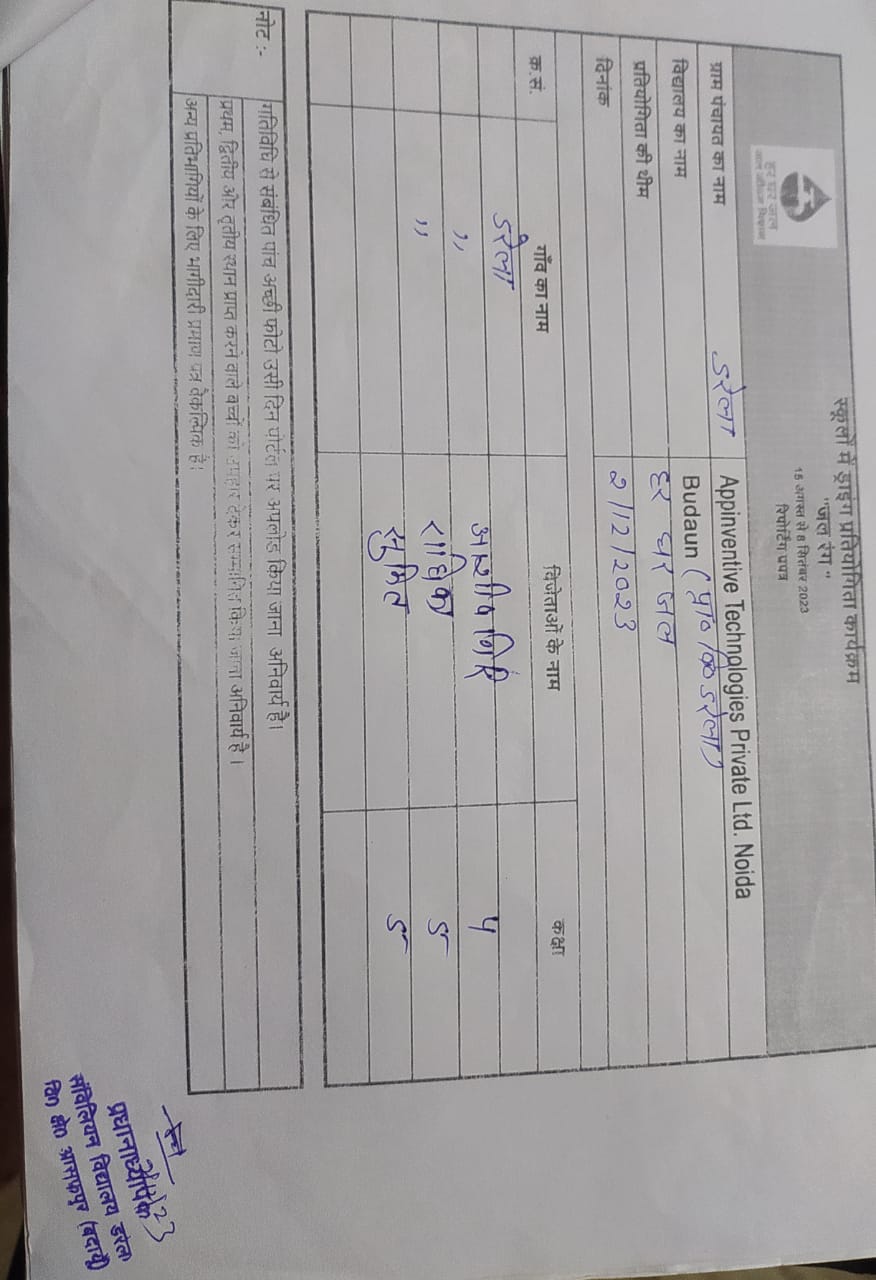 हर घर जल
जल जीवन मिशन
स्कूलों में ड्राइंग प्रतियोगिता कार्यक्रम
"जल रंग"
15 अगस्त से 8 सितंबर 2023
रिपोर्टिंग प्रपत्र
Appinventive Technologies Private Ltd. Noida
ग्राम पंचायत का नाम डरेला Budaun (प्रा० वि० डरेला)
विद्यालय का नाम हर घर जल
प्रतियोगिता की थीम 21/12/2023
दिनांक
क्र.सं. गाँव का नाम विजेताओं के नाम कक्षा
डरेला गिरि
,, राधिका 5
,, सुमित 5
नोट :- गतिविधि से संबंधित पांच अच्छी फोटो उसी दिन पोर्टल पर अपलोड किया जाना अनिवार्य है।
प्रथम, द्वितीय और तृतीय स्थान प्राप्त करने वाले बच्चों को उपहार देकर सम्मानित किया जाना अनिवार्य है।
अन्य प्रतिभागियों के लिए भागीदारी प्रमाण पत्र वैकल्पिक है।
प्रधानाध्यापक
संविलियन विद्यालय डरेला
वि० क्षे० आसफपुर (बदायूँ)